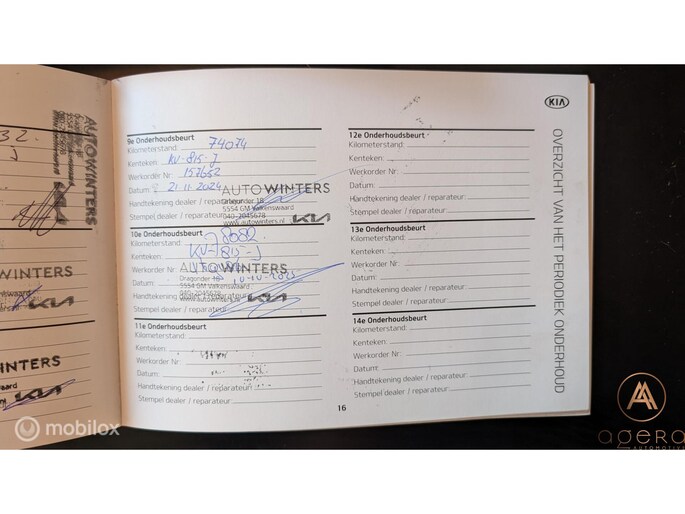 AUTOWINTERS
WINTERS
KIA
WINTERS
KIA
9e Onderhoudsbeurt
Kilometerstand: 74074
Kenteken: KV-815-J
Werkorder Nr: 157652
Datum: 21-11-2024
AUTOWINTERS
Handtekening dealer / reparateur:
5554 GM Valkenswaard
Stempel dealer / reparateur:
040-2045678
www.autowinters.nl
KIA
10e Onderhoudsbeurt
Kilometerstand: 78682
Kenteken: KV-815-J
Werkorder Nr:
AUTOWINTERS
Datum:
5554 GM Valkenswaard
040-2045678
Handtekening dealer / reparateur:
www.autowinters.nl
KIA
Stempel dealer / reparateur:
11e Onderhoudsbeurt
Kilometerstand:
Kenteken:
Werkorder Nr:
Datum:
Handtekening dealer / reparateur:
Stempel dealer / reparateur:
12e Onderhoudsbeurt
Kilometerstand:
Kenteken:
Werkorder Nr:
Datum:
Handtekening dealer / reparateur:
Stempel dealer / reparateur:
13e Onderhoudsbeurt
Kilometerstand:
Kenteken:
Werkorder Nr:
Datum:
Handtekening dealer / reparateur:
Stempel dealer / reparateur:
14e Onderhoudsbeurt
Kilometerstand:
Kenteken:
Werkorder Nr:
Datum:
Handtekening dealer / reparateur:
Stempel dealer / reparateur:
16
KIA
OVERZICHT VAN HET PERIODIEK ONDERHOUD
mobilox
agera
AUTOMOTIVE